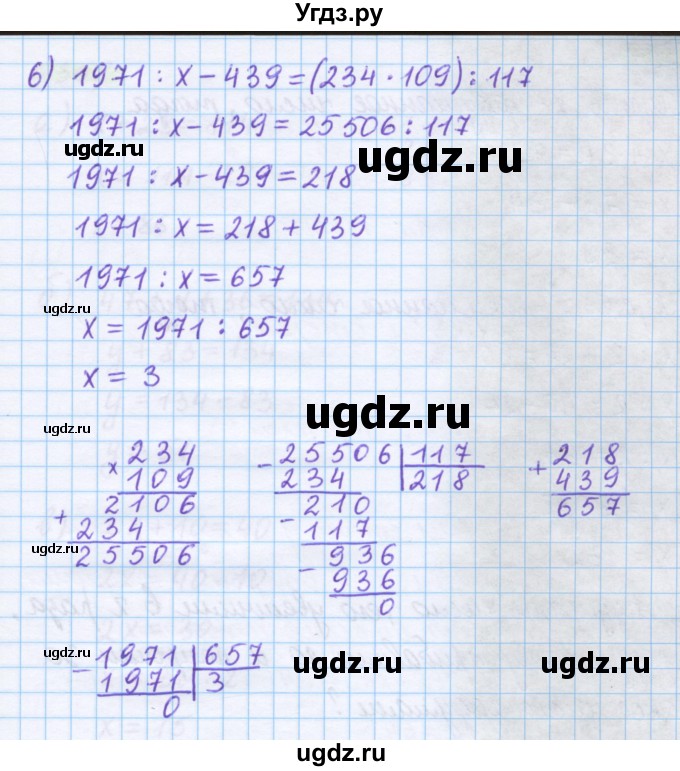 Угдз.ру
6) 1971 : x − 439 = (234 · 109) : 117
1971 : x − 439 = 25506 : 117
ugdz.ru
ugdz.ru
1971 : x − 439 = 218
1971 : x = 218 + 439
1971 : x = 657
ugdz.ru
x = 1971 : 657
x = 3
ugdz.ru
ugdz.ru
× 234
109
+ 2106
234
25506
− 25506 | 117
234 | 218
− 210
117
− 936
936
0
+ 218
439
657
ugdz.ru
ugdz.ru
− 1971 | 657
1971 | 3
0
ugdz.ru
ugdz.ru
ugdz.ru